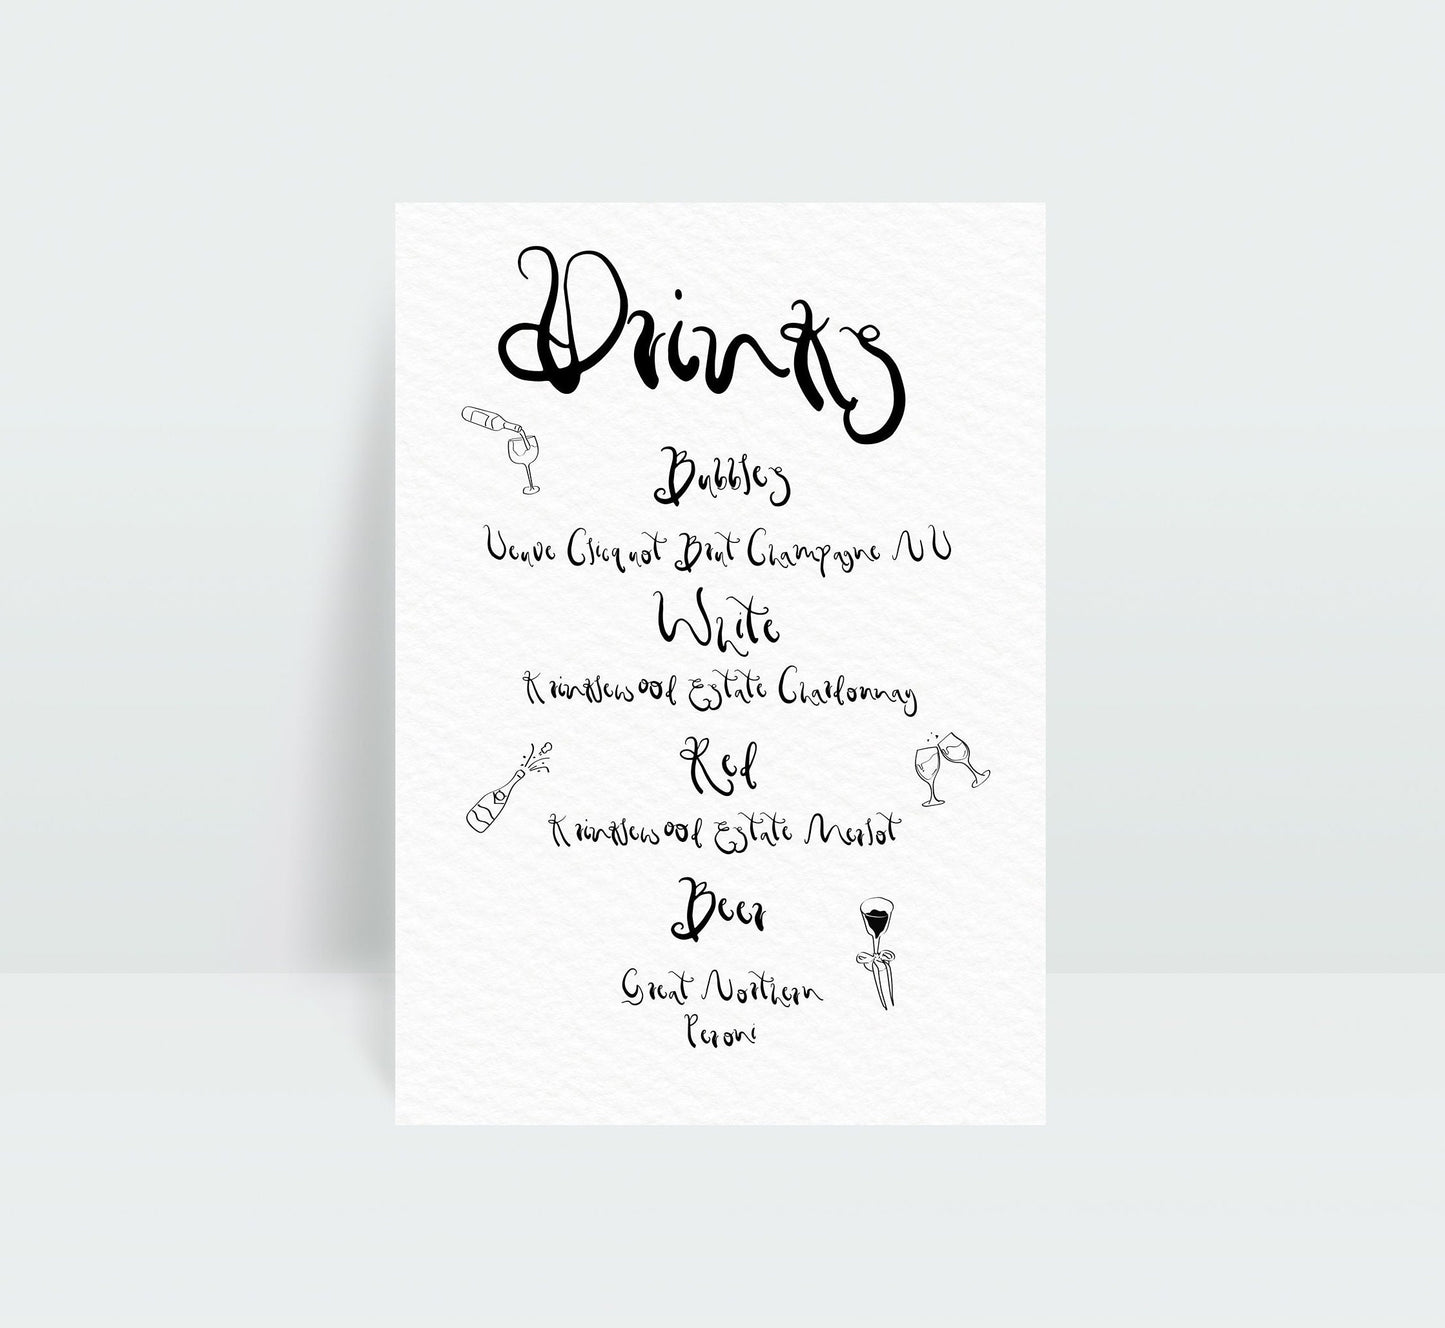 Drinks
Bubbles
Veuve Clicquot Brut Champagne NV
White
Krinklewood Estate Chardonnay
Red
Krinklewood Estate Merlot
Beer
Great Northern
Peroni